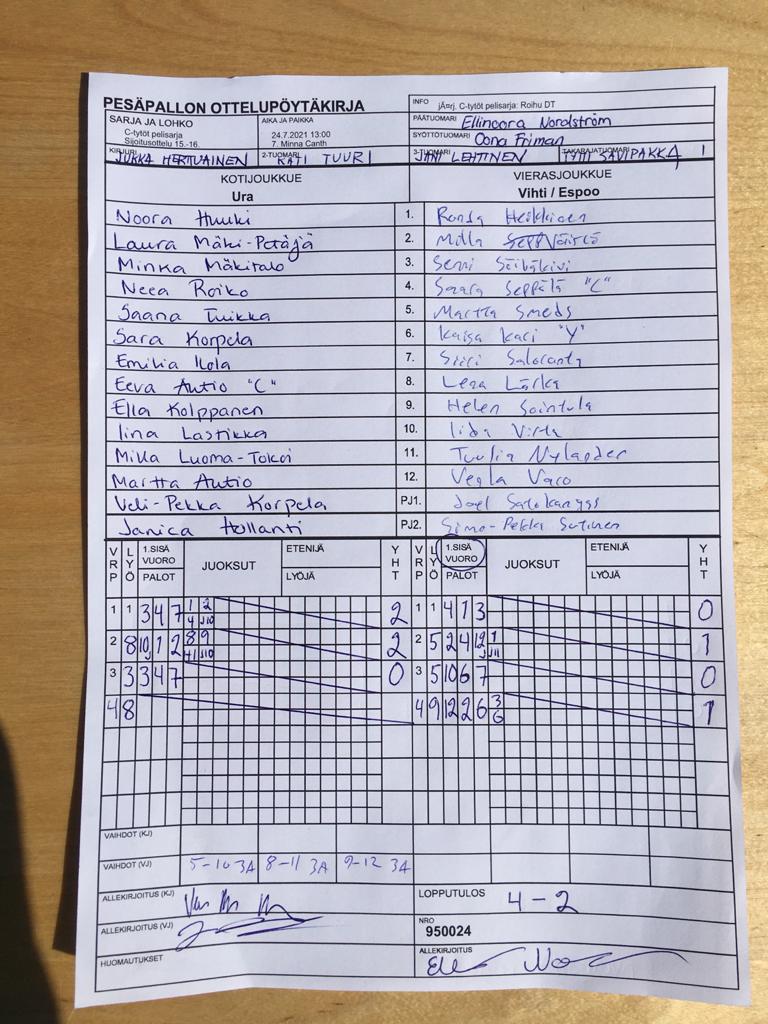 PESÄPALLON OTTELUPÖYTÄKIRJA
SARJA JA LOHKO
C-tytöt pelisarja
Sijoitusottelu 15.-16.
AIKA JA PAIKKA
24.7.2021 13:00
7. Minna Canth
INFO jÃ¤rj. C-tytöt pelisarja: Roihu DT
PÄÄTUOMARI Ellinoora Nordström
SYÖTTÖTUOMARI Oona Friman
KIRJURI JUKKA HERTUAINEN 2-TUOMARI KATI TUURI 3-TUOMARI JANI LEHTINEN TAKARAJATUOMARI
KOTIJOUKKUE VIERASJOUKKUE
Ura Vihti / Espoo
Noora Huuki 1. Ronja Heikkinen
Laura Mäki-Petäjä 2. Milla
Minka Mäkitalo 3. Senni
Neea Roiko 4. Saara Seppälä "C"
Saana Tuikka 5. Martta Smeds
Sara Korpela 6. Kaisa Kari "Y"
Emilia Ilola 7. Siiri Saloranta
Eeva Autio "C" 8. Lena Lärka
Ella Kolppanen 9. Helen Sointula
Iina Lastikka 10. Iida Virta
Milla Luoma-Tokoi 11. Tuulia Nylander
Martta Autio 12. Varo
Veli-Pekka Korpela PJ1. Joel
Janica Hollanti PJ2. Simo-Pekka Sutinen
VRP LYÖ 1.SISÄ VUORO PALOT JUOKSUT ETENIJÄ LYÖJÄ YHT VRP LYÖ 1.SISÄ VUORO PALOT JUOKSUT ETENIJÄ LYÖJÄ YHT
1 1 3 4 7 1 2 2 1 1 4 1 3 0
4 J10
2 8 10 1 2 8 9 2 2 5 2 4 12 1 1
J10 J11
3 3 3 4 7 0 3 5 10 6 7 0
4 8 4 9 12 2 6 3 1
6
VAIHDOT (KJ)
VAIHDOT (VJ) 5-10 3A 8-11 3A 9-12 3A
ALLEKIRJOITUS (KJ)
LOPPUTULOS 4-2
ALLEKIRJOITUS (VJ)
NRO
950024
HUOMAUTUKSET
ALLEKIRJOITUS